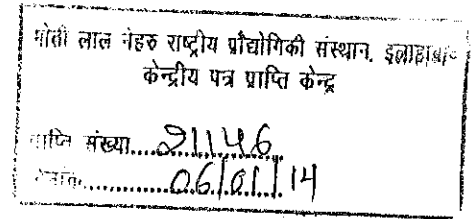 मोती लाल नेहरु राष्ट्रीय प्रौद्योगिकी संस्थान, इलाहाबाद
केन्द्रीय पत्र प्राप्ति केन्द्र
प्राप्ति संख्या.....21146
दिनांक...............06/01/14